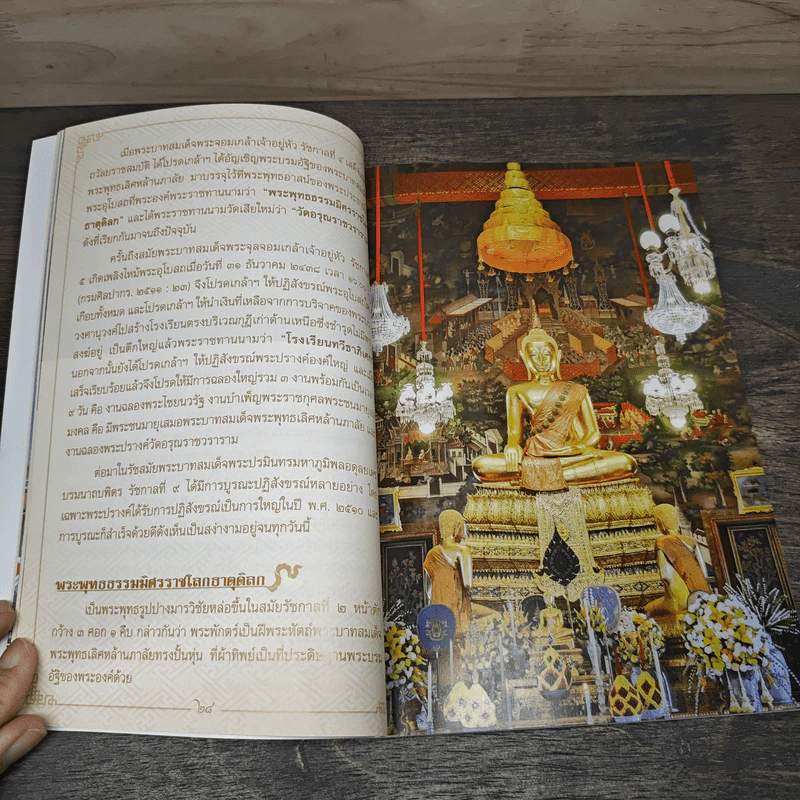 เมื่อพระบาทสมเด็จพระจอมเกล้าเจ้าอยู่หัว รัชกาลที่ ๔
ถวัลยราชสมบัติ ได้โปรดเกล้าฯ ได้อัญเชิญพระบรมอัฐิของพระบาทสมเด็จ
พระพุทธเลิศหล้านภาลัย มาบรรจุไว้ที่พระพุทธอาสน์ของพระประธาน
พระอุโบสถที่พระองค์พระราชทานนามว่า “พระพุทธธรรมมิศรราช
ธาตุดิลก” และได้พระราชทานนามวัดเสียใหม่ว่า “วัดอรุณราชวราราม
ดังที่เรียกกันมาจนถึงปัจจุบัน
ครั้นถึงสมัยพระบาทสมเด็จพระจุลจอมเกล้าเจ้าอยู่หัว
๕ เกิดเพลิงไหม้พระอุโบสถเมื่อวันที่ ๓๑ ธันวาคม ๒๔๓๘ เวลา
(กรมศิลปากร. ๒๕๑๑ : ๒๓) จึงโปรดเกล้าฯ ให้ปฏิสังขรณ์พระอุโบสถ
เกือบทั้งหมด และโปรดเกล้าฯ ให้นำเงินที่เหลือจากการบริจาคของพระ
วงศานุวงศ์ไปสร้างโรงเรียนตรงบริเวณกุฏีเก่าด้านเหนือซึ่งชำรุดไม่มี
สงฆ์อยู่ เป็นตึกใหญ่แล้วพระราชทานนามว่า “โรงเรียนทวีธาภิเศก
นอกจากนั้นยังได้โปรดเกล้าฯ ให้ปฏิสังขรณ์พระปรางค์องค์ใหญ่ และ
เสร็จเรียบร้อยแล้วจึงโปรดให้มีการฉลองใหญ่รวม ๓ งานพร้อมกันเป็น
๙ วัน คือ งานฉลองพระไชยนวรัฐ งานบำเพ็ญพระราชกุศลพระชนมายุ
มงคล คือ มีพระชนมายุเสมอพระบาทสมเด็จพระพุทธเลิศหล้านภาลัย
งานฉลองพระปรางค์วัดอรุณราชวราราม
ต่อมาในรัชสมัยพระบาทสมเด็จพระปรมินทรมหาภูมิพลอดุลยเดช
บรมนาถบพิตร รัชกาลที่ ๙ ได้มีการบูรณะปฏิสังขรณ์หลายอย่าง โดย
เฉพาะพระปรางค์ได้รับการปฏิสังขรณ์เป็นการใหญ่ในปี พ.ศ. ๒๕๑๐ และ
การบูรณะก็สำเร็จด้วยดีดังเห็นเป็นสง่างามอยู่จนทุกวันนี้
พระพุทธธรรมมิศรราชโลกธาตุดิลก
เป็นพระพุทธรูปปางมารวิชัยหล่อขึ้นในสมัยรัชกาลที่ ๒ หน้าตัก
กว้าง ๓ ศอก ๑ คืบ กล่าวกันว่า พระพักตร์เป็นฝีพระหัตถ์พระบาทสมเด็จ
พระพุทธเลิศหล้านภาลัยทรงปั้นหุ่น ที่ผ้าทิพย์เป็นที่ประดิษฐานพระบรม
อัฐิของพระองค์ด้วย
๒๘